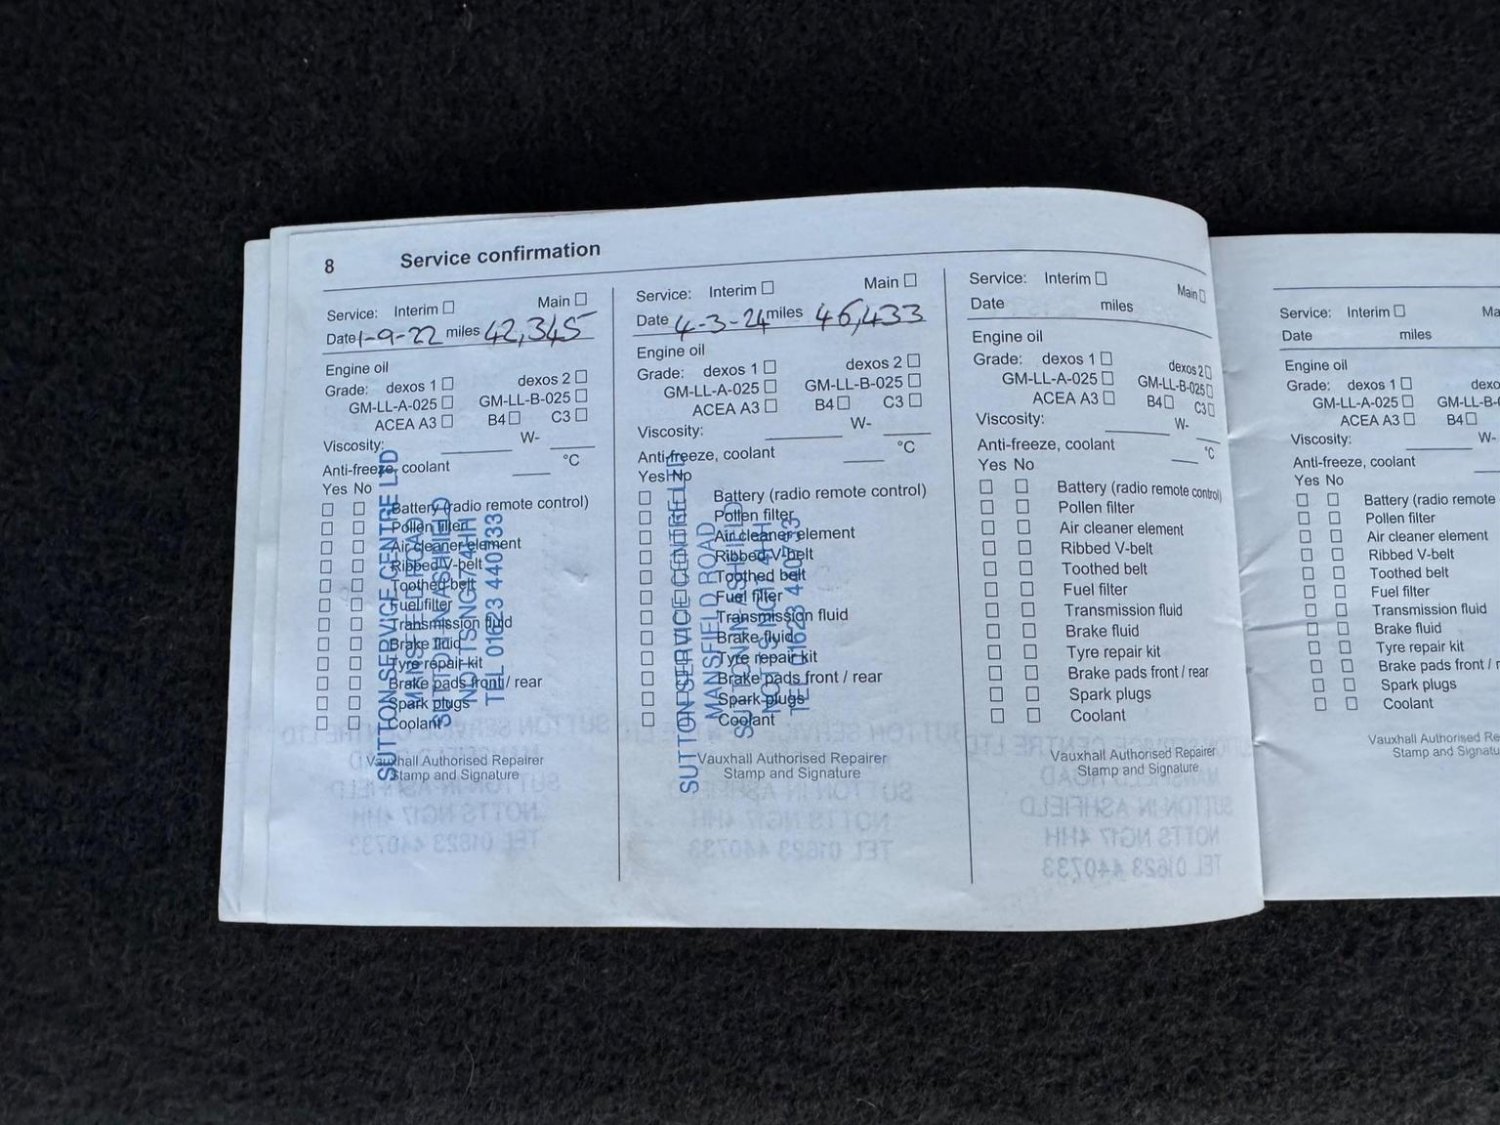 8 Service confirmation
Service: Interim ☐ Main ☐
Date 1-9-22 miles 42,345
Engine oil
Grade: dexos 1 ☐ dexos 2 ☐
GM-LL-A-025 ☐ GM-LL-B-025 ☐
ACEA A3 ☐ B4 ☐ C3 ☐
Viscosity: W-
Anti-freeze, coolant °C
Yes No
☐ ☐ Battery (radio remote control)
☐ ☐ Pollen filter
☐ ☐ Air cleaner element
☐ ☐ Ribbed V-belt
☐ ☐ Toothed belt
☐ ☐ Fuel filter
☐ ☐ Transmission fluid
☐ ☐ Brake fluid
☐ ☐ Tyre repair kit
☐ ☐ Brake pads front / rear
☐ ☐ Spark plugs
☐ ☐ Coolant
SUTTON SERVICE CENTRE LTD
TEL 01623 440733
Vauxhall Authorised Repairer
Stamp and Signature
Service: Interim ☐ Main ☐
Date 4-3-24 miles 46,433
Engine oil
Grade: dexos 1 ☐ dexos 2 ☐
GM-LL-A-025 ☐ GM-LL-B-025 ☐
ACEA A3 ☐ B4 ☐ C3 ☐
Viscosity: W-
Anti-freeze, coolant °C
Yes No
☐ Battery (radio remote control)
☐ Pollen filter
☐ Air cleaner element
☐ Ribbed V-belt
☐ Toothed belt
☐ Fuel filter
☐ Transmission fluid
☐ Brake fluid
☐ Tyre repair kit
☐ Brake pads front / rear
☐ Spark plugs
☐ Coolant
SUTTON SERVICE CENTRE LTD
MANSFIELD ROAD
SUTTON IN ASHFIELD
NOTTS NG17 4HH
TEL 01623 440733
Vauxhall Authorised Repairer
Stamp and Signature
Service: Interim ☐ Main ☐
Date miles
Engine oil
Grade: dexos 1 ☐ dexos 2 ☐
GM-LL-A-025 ☐ GM-LL-B-025 ☐
ACEA A3 ☐ B4 ☐ C3 ☐
Viscosity: W-
Anti-freeze, coolant °C
Yes No
☐ ☐ Battery (radio remote control)
☐ ☐ Pollen filter
☐ ☐ Air cleaner element
☐ ☐ Ribbed V-belt
☐ ☐ Toothed belt
☐ ☐ Fuel filter
☐ ☐ Transmission fluid
☐ ☐ Brake fluid
☐ ☐ Tyre repair kit
☐ ☐ Brake pads front / rear
☐ ☐ Spark plugs
☐ ☐ Coolant
Vauxhall Authorised Repairer
Stamp and Signature
Service: Interim ☐ Ma
Date miles
Engine oil
Grade: dexos 1 ☐ dexo
GM-LL-A-025 ☐ GM-LL-B-
ACEA A3 ☐ B4 ☐
Viscosity: W-
Anti-freeze, coolant
Yes No
☐ ☐ Battery (radio remote
☐ ☐ Pollen filter
☐ ☐ Air cleaner element
☐ ☐ Ribbed V-belt
☐ ☐ Toothed belt
☐ ☐ Fuel filter
☐ ☐ Transmission fluid
☐ ☐ Brake fluid
☐ ☐ Tyre repair kit
☐ ☐ Brake pads front / r
☐ ☐ Spark plugs
☐ ☐ Coolant
Vauxhall Authorised Re
Stamp and Signatu